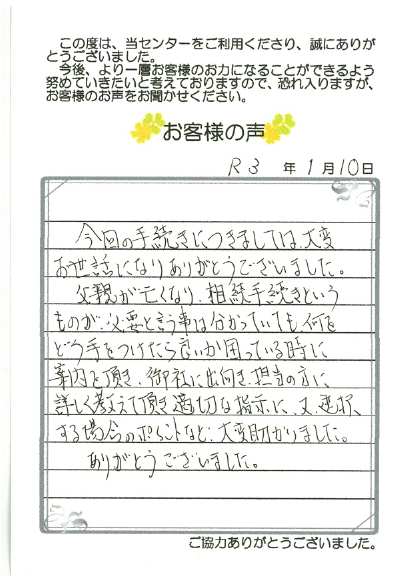 この度は、当センターをご利用くださり、誠にありが
とうございました。
今後、より一層お客様のお力になることができるよう
努めていきたいと考えておりますので、恐れ入りますが、
お客様のお声をお聞かせください。
お客様の声
R3 年 1 月 10 日
今回の手続きにつきましては、大変
お世話になりありがとうございました。
父親が亡くなり、相続手続きという
ものが、必要と言う事は分かっていても、何を
どう手をつけたら良いか困っている時に
案内を頂き、御社に出向き、担当の方に
詳しく教えて頂き適切な指示に、又、選択
する場合のポイントなど、大変助かりました。
ありがとうございました。
ご協力ありがとうございました。